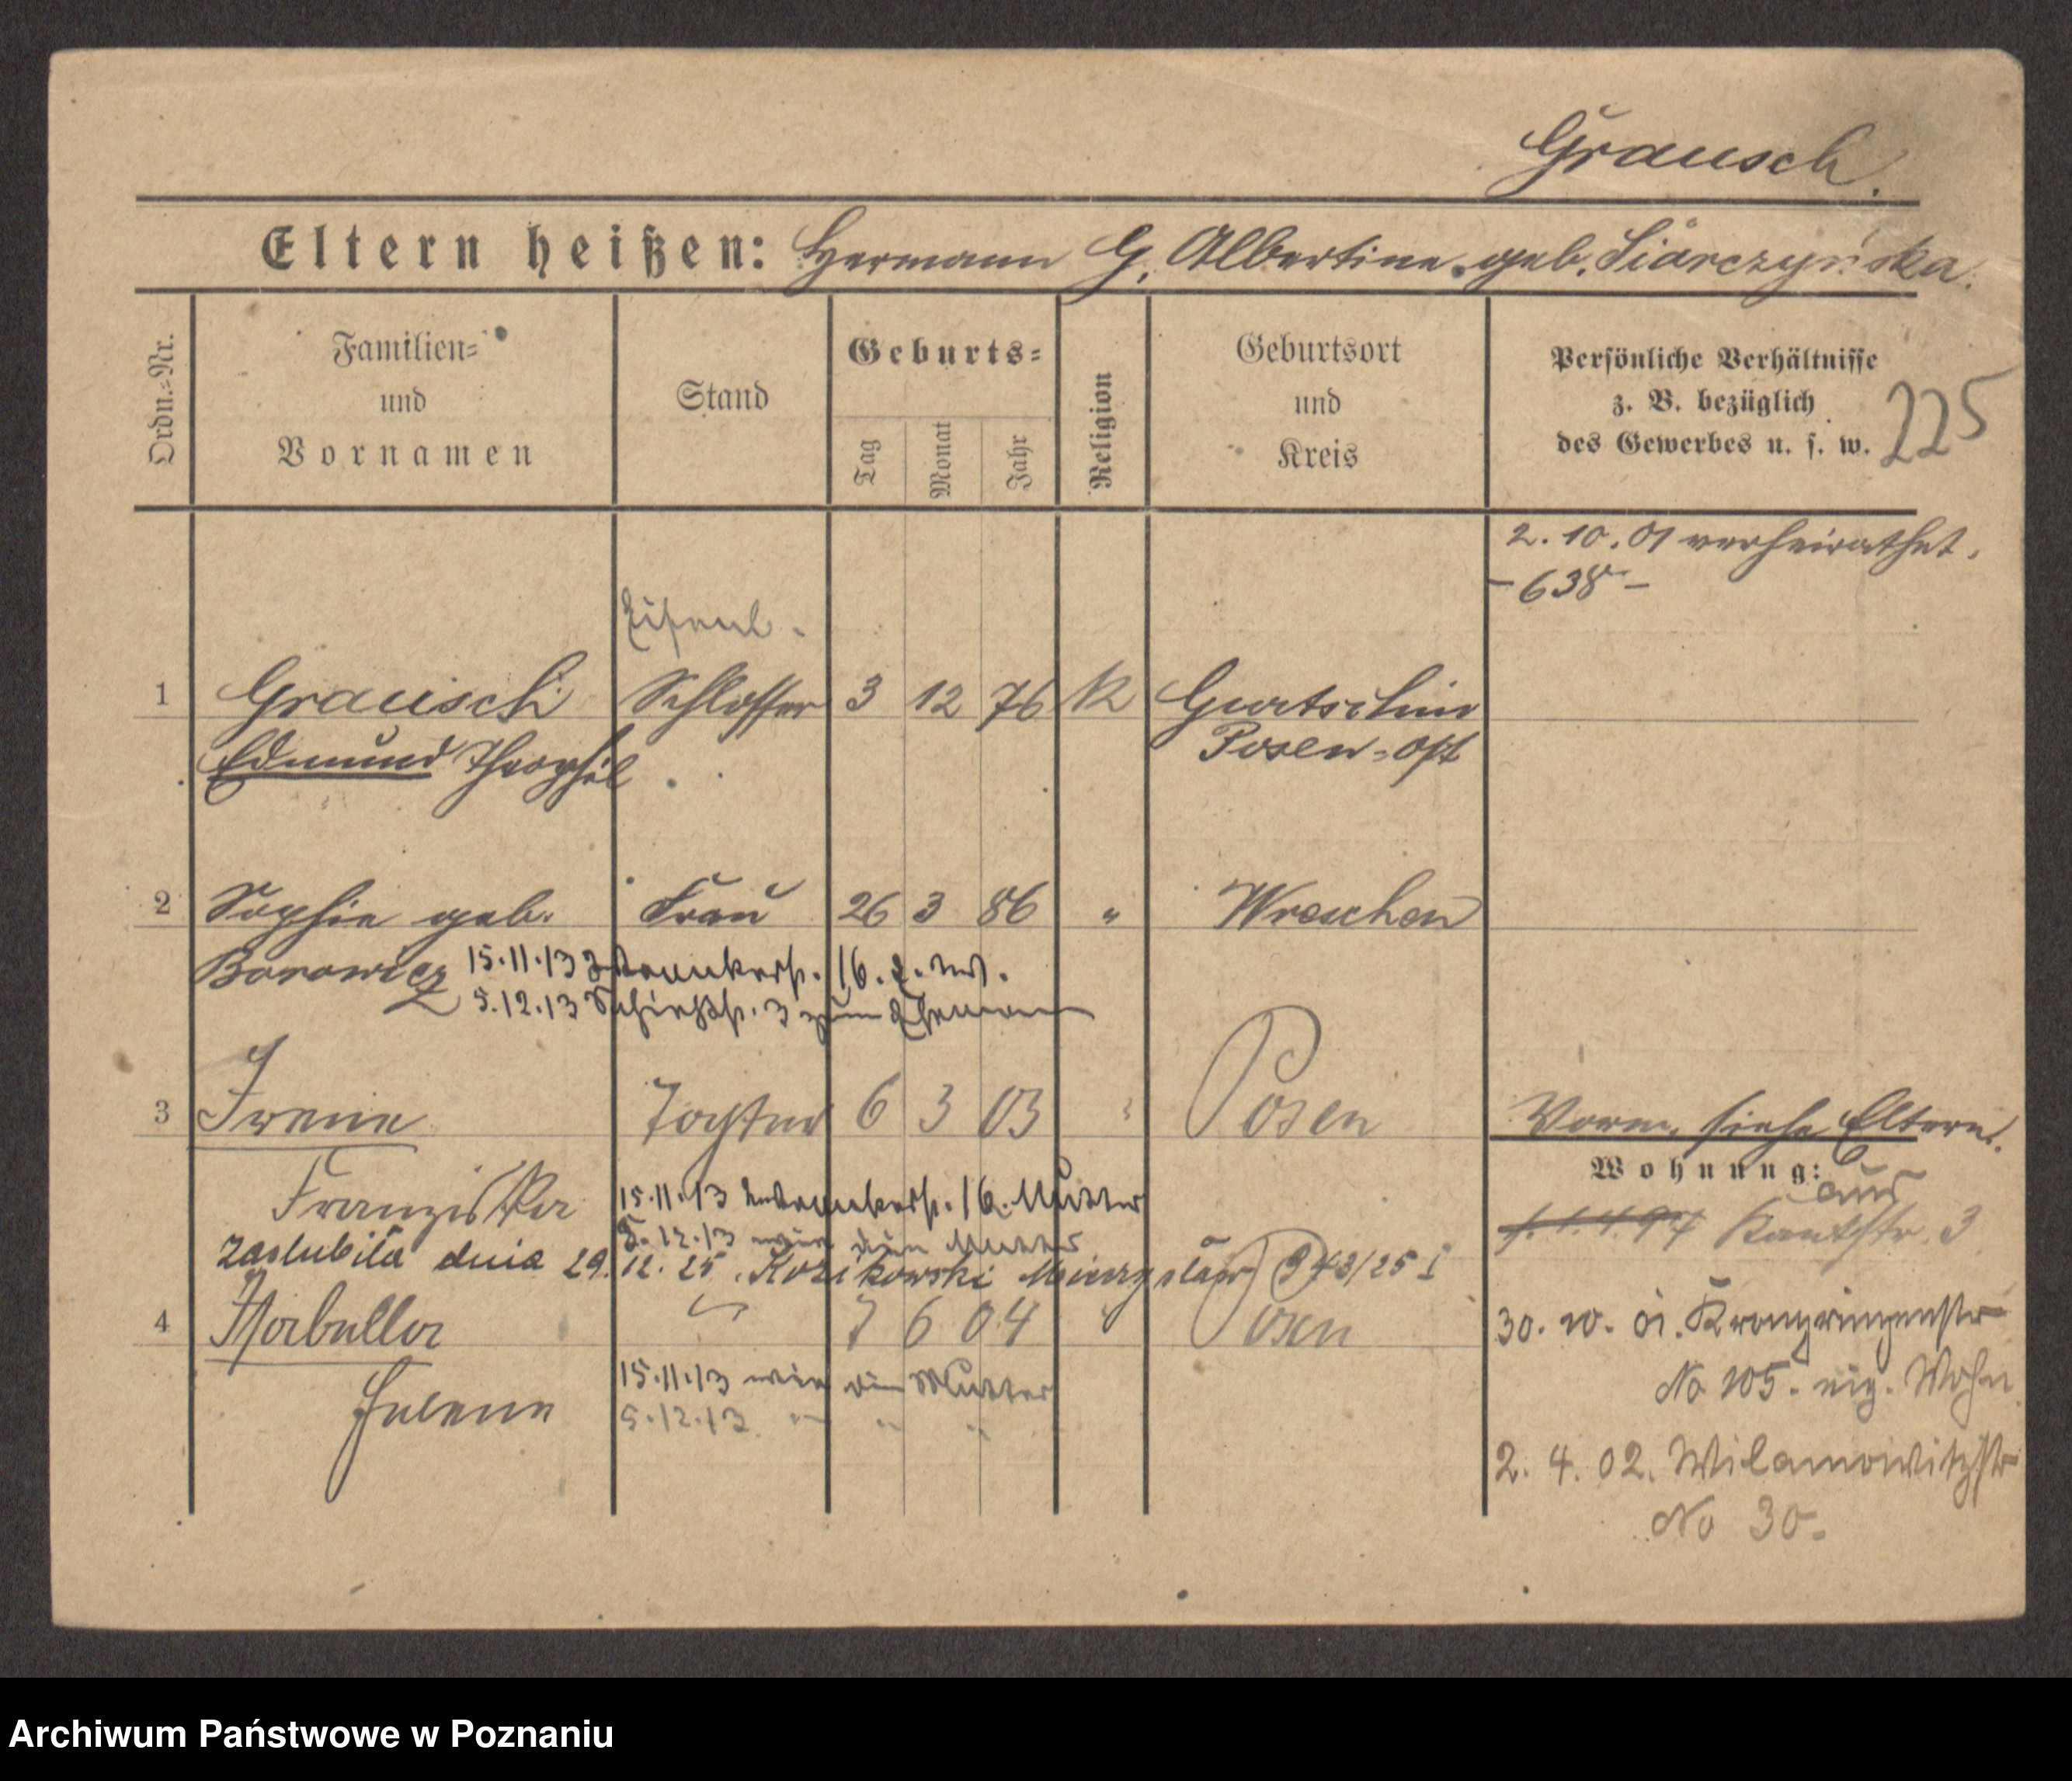 Grausch.
Eltern heißen: Hermann G. Albertine geb. Siarczyńska.
Ordn.-Nr.
Familien-
und
Vornamen
Stand
Geburts-
Tag
Monat
Jahr
Religion
Geburtsort
und
Kreis
Persönliche Verhältnisse
z. B. bezüglich
des Gewerbes u. s. w.
225
2. 10. 01 verheirathet.
- 638 -
Eisenb.
1 Grausch Schlosser 3 12 76 K Gurtschin
Edmund Theophil Posen-Ost
2 Sophie geb. Frau 26 3 86 " Wreschen
Borowicz 15.11.13 16.
5.12.13 Schießst. 3 zum Ehemann
3 Irene Tochter 6 3 03 " Posen
Vorm. siehe Eltern.
Wohnung:
Franziska 15.11.13 16. Mutter
5.12.13 wie die Mutter
aus
Kantstr. 3
zaślubiła dnia 29.12.25. Kozikowski Mieczysław 943/25 I
4 " 7 6 04 " Posen
30. 10. 01. Kronprinzenstr
No 105. eig. Wohn
Helene 15.11.13 wie die Mutter
5.12.13 " " "
2. 4. 02. Wilamowitzstr
No 30.
Archiwum Państwowe w Poznaniu